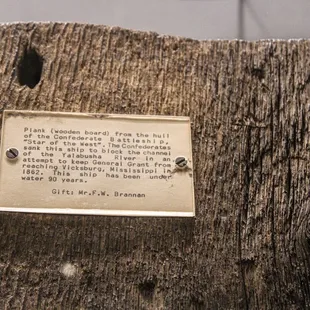 Plank (wooden board) from the hull
of the Confederate Battleship,
"Star of the West". The Confederates
sank this ship to block the channel
of the Yalabusha River in an
attempt to keep General Grant from
reaching Vicksburg, Mississippi in
1862. This ship has been under
water 90 years.
Gift: Mr.F.W. Brannan